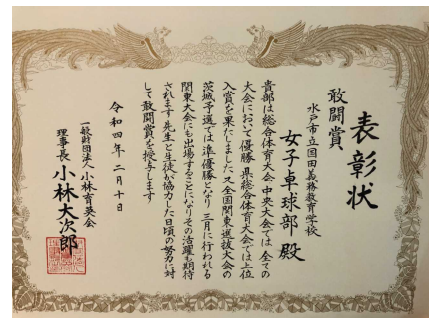 表彰状
敢闘賞
水戸市立国田義務教育学校
女子卓球部 殿
貴部は総合体育大会中央大会では全ての
大会において優勝 県総合体育大会では上位
入賞を果たしました 又全国関東選抜大会の
茨城予選では準優勝となり 三月に行われる
関東大会にも出場することになりその活躍も期待
されます 先生と生徒が協力した日頃の努力に対
して敢闘賞を授与します
令和四年二月十日
一般財団法人 小林育英会
理事長 小林大次郎